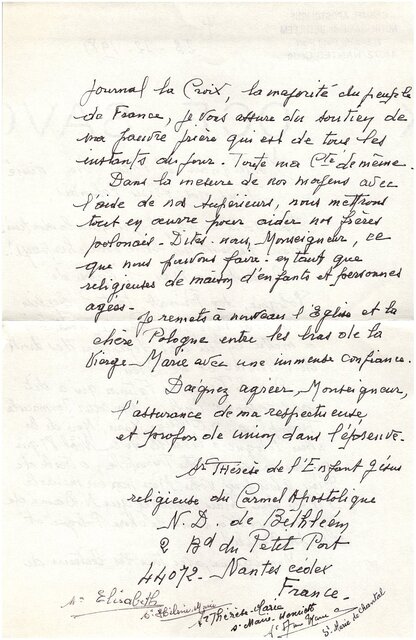 Journal la Croix, la majorité du peuple
de France, je vous assure du soutien de
ma pauvre prière qui est de tous les
instants du jour. Toute ma Cté de même.
Dans la mesure de nos moyens avec
l'aide de nos supérieurs, nous mettrons
tout en œuvre pour aider nos frères
polonais. Dites-nous, Monseigneur, ce
que nous pouvons faire : en tant que
religieuses de maison d'enfants et personnes
agées.
Je remets à nouveau l'Eglise et la
chère Pologne entre les bras de la
Vierge-Marie avec une immense confiance.
Daignez agréer, Monseigneur,
l'assurance de ma respectueuse
et profonde union dans l'épreuve.
Sr Thérèse de l'Enfant Jésus
religieuse du Carmel Apostolique
N.D. de Béthléem
2 Bd du Petit Port
44072 - Nantes cédex
France.
Elisabeth
Sr Thérèse-Marie
Sr Marie de Chantal